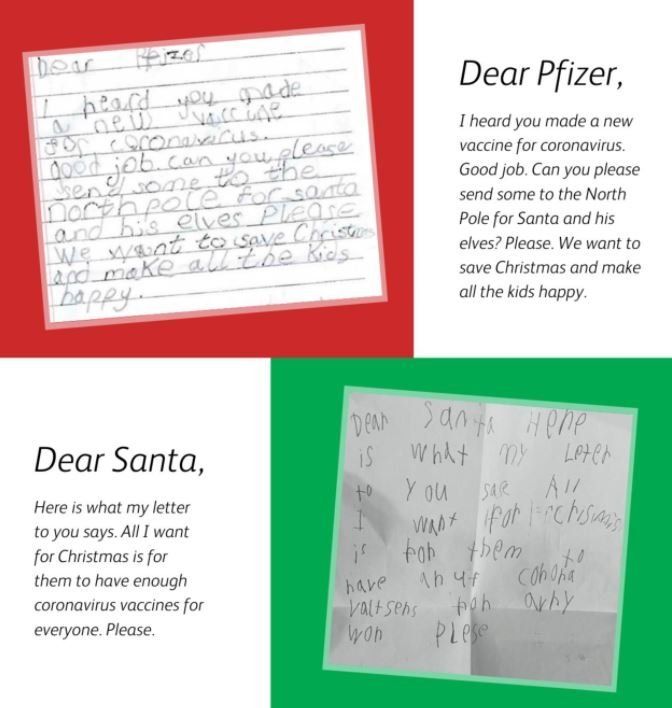 Dear Pfizer
I heard you made
a new vaccine
for coronavirus.
good job. can you please
send some to the
northpole for santa
and his elves please
We want to save Christmas
and make all the kids
happy.
Dear Pfizer,
I heard you made a new
vaccine for coronavirus.
Good job. Can you please
send some to the North
Pole for Santa and his
elves? Please. We want to
save Christmas and make
all the kids happy.
Dear Santa,
Here is what my letter
to you says. All I want
for Christmas is for
them to have enough
coronavirus vaccines for
everyone. Please.
Dear Santa Hene
is what my Leter
to you sase All
I want for
is for them to
have cohona
won Plese